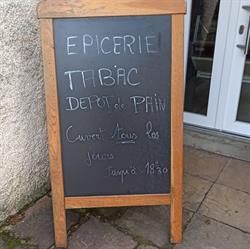 EPICERIE
TABAC
DEPOT de PAIN
Ouvert tous les
jours
jusqu'à 18h30